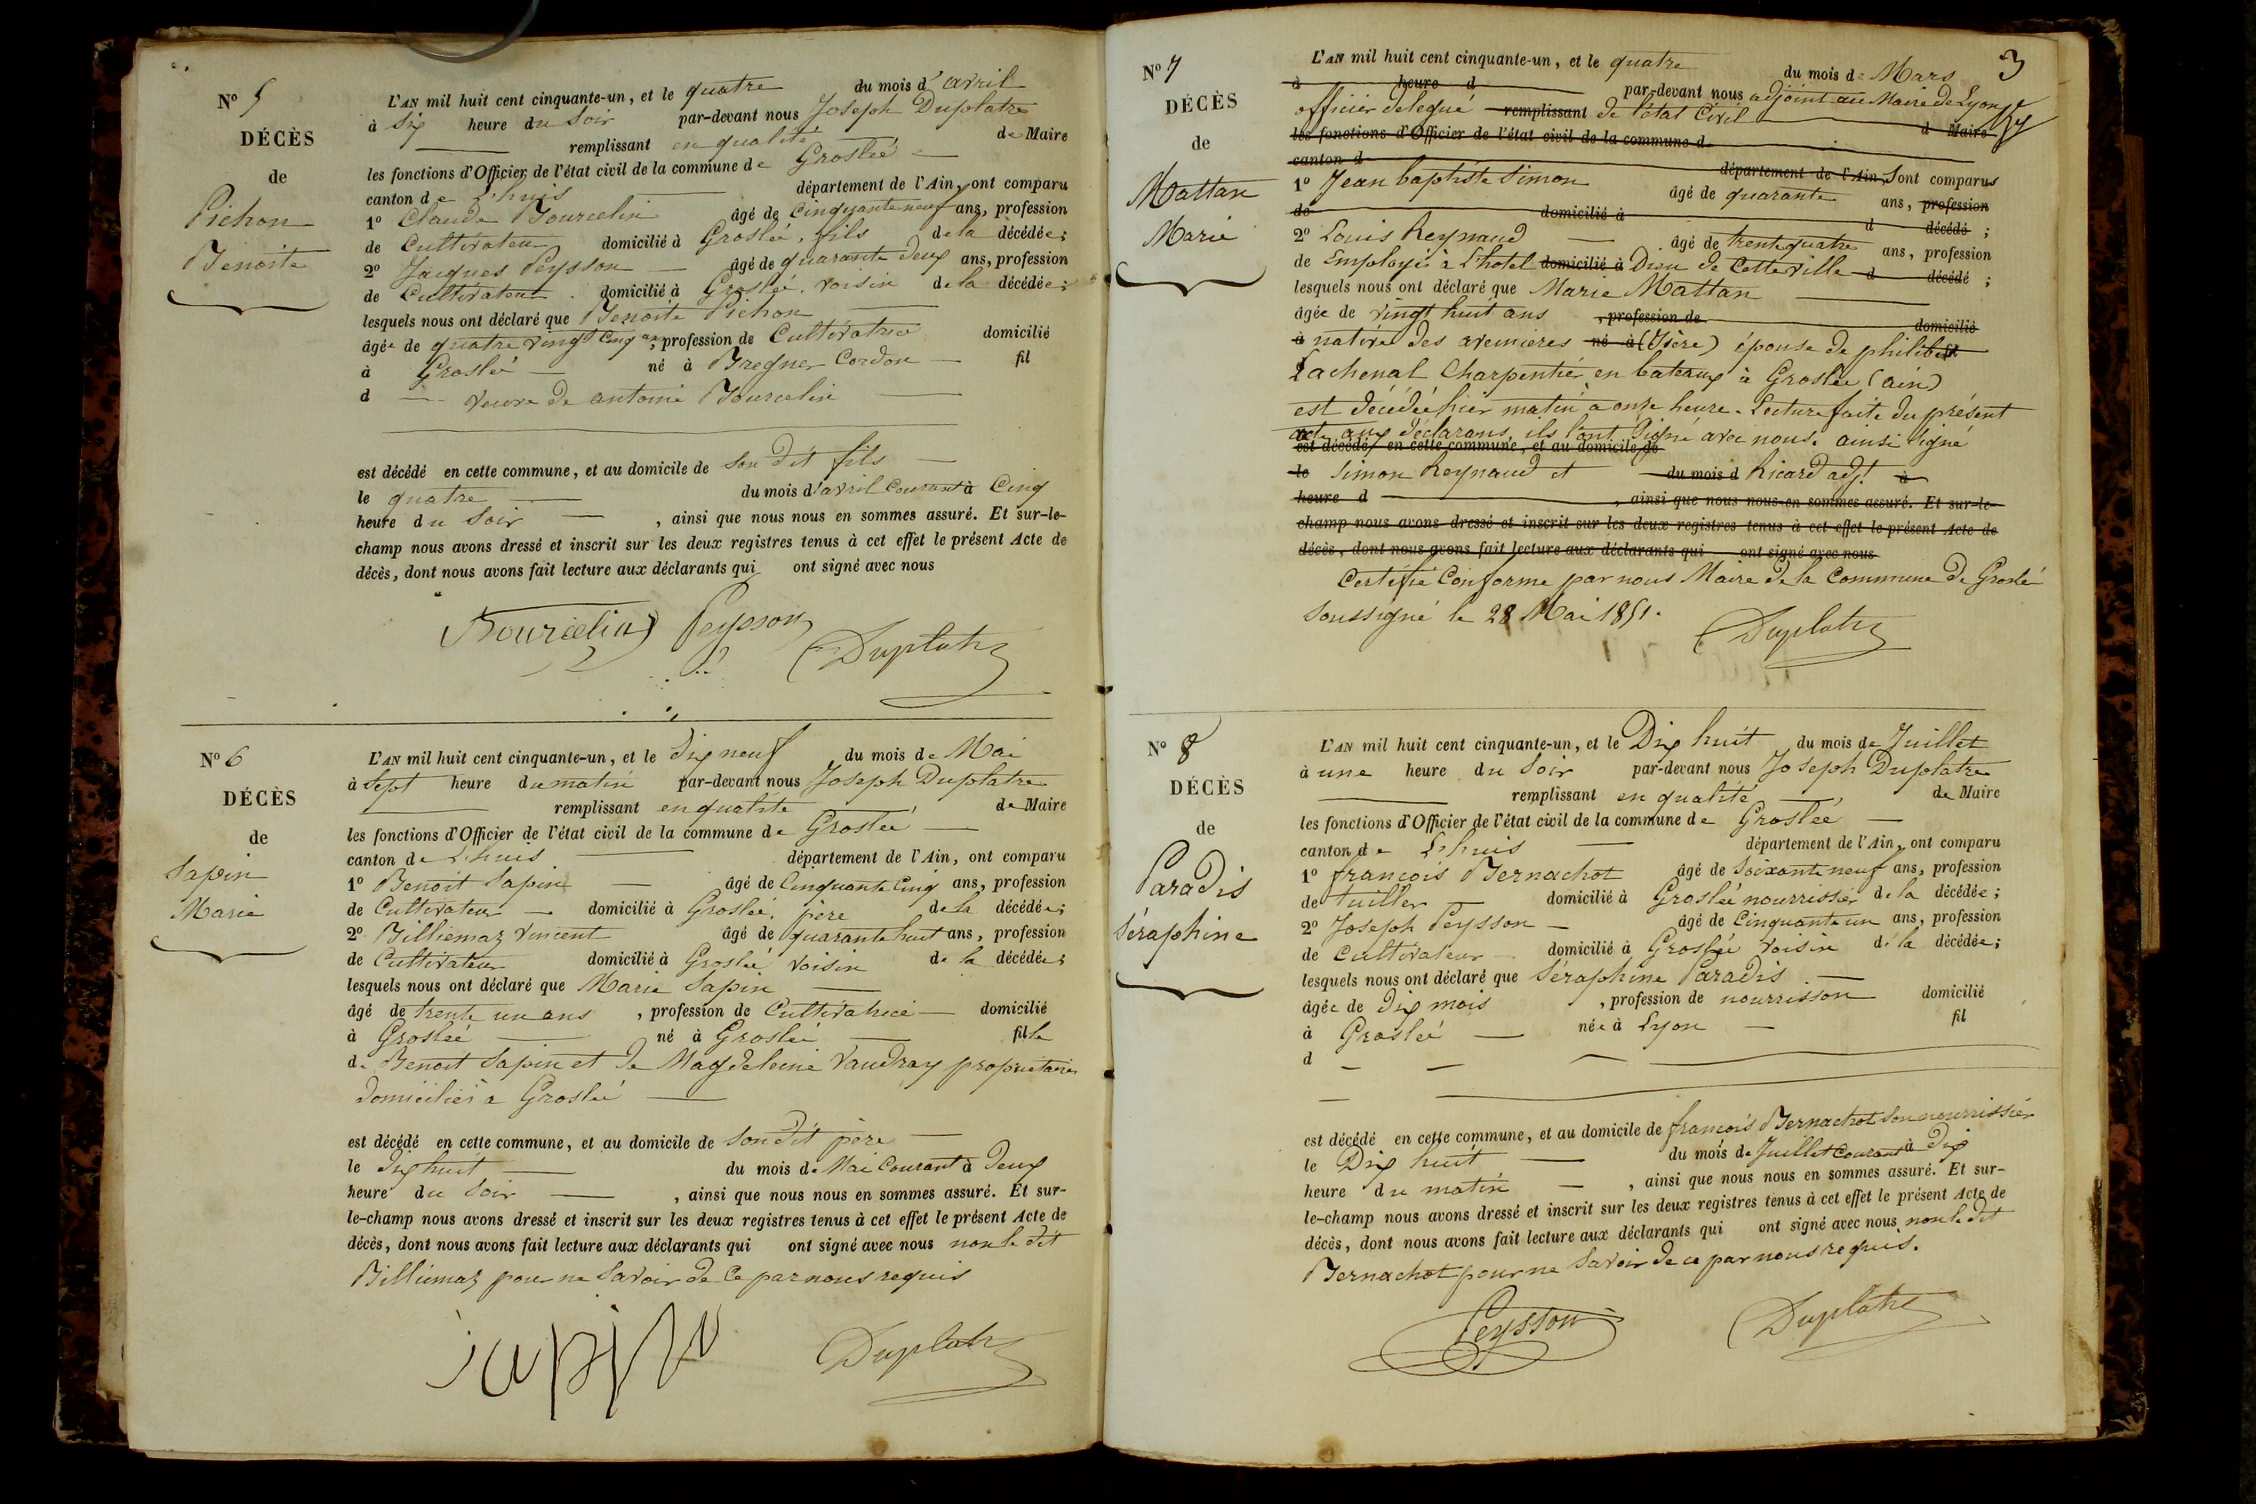 N° 5
DÉCÈS
de
Pichon
Benoite
L'AN mil huit cent cinquante-un, et le quatre du mois d'avril
à Six heure du Soir par-devant nous Joseph Duplatre
remplissant en qualité de Maire
les fonctions d'Officier de l'état civil de la commune de Groslée
canton de L'huis département de l'Ain, ont comparu
1° Claude Bourcelin âgé de Cinquante neuf ans, profession
de Cultivateur domicilié à Groslée, fils de la décédée;
2° Jacques Peysson âgé de quarante deux ans, profession
de Cultivateur domicilié à Groslée, voisin de la décédée;
lesquels nous ont déclaré que Benoite Pichon
âgée de quatre vingt Cinq ans, profession de Cultivatrice domicilié
à Groslée né à Bregner Cordon fil
d veuve de antoine Bourcelin
est décédé en cette commune, et au domicile de Son dit fils
le quatre du mois d'avril Courant à Cinq
heure du Soir , ainsi que nous nous en sommes assuré. Et sur-le-
champ nous avons dressé et inscrit sur les deux registres tenus à cet effet le présent Acte de
décès, dont nous avons fait lecture aux déclarants qui ont signé avec nous
Bourcelin Peysson Duplatre
N° 6
DÉCÈS
de
Sapin
Marie
L'AN mil huit cent cinquante-un, et le Dix neuf du mois de Mai
à Sept heure du matin par-devant nous Joseph Duplatre
remplissant en qualité de Maire
les fonctions d'Officier de l'état civil de la commune de Groslée
canton de L'huis département de l'Ain, ont comparu
1° Benoit Sapin âgé de Cinquante Cinq ans, profession
de Cultivateur domicilié à Groslée, père de la décédée;
2° Billiemaz Vincent âgé de quarante huit ans, profession
de Cultivateur domicilié à Groslée voisin de la décédée;
lesquels nous ont déclaré que Marie Sapin
âgé de trente un ans , profession de Cultivatrice domicilié
à Groslée né à Groslée fille
de Benoit Sapin et de Magdeleine Vaudray propriétaires
domiciliés à Groslée
est décédé en cette commune, et au domicile de Son dit père
le Dix huit du mois de Mai Courant à Deux
heure du Soir , ainsi que nous nous en sommes assuré. Et sur-
le-champ nous avons dressé et inscrit sur les deux registres tenus à cet effet le présent Acte de
décès, dont nous avons fait lecture aux déclarants qui ont signé avec nous non le dit
Billiemaz pour ne Savoir de ce par nous requis
Duplatre
3
N° 7
DÉCÈS
de
Mattan
Marie
L'AN mil huit cent cinquante-un, et le quatre du mois de Mars
à heure d par-devant nous adjoint au Maire de Lyon
officier délégué remplissant de l'état Civil d Maire
les fonctions d'Officier de l'état civil de la commune d
canton d département de l'Ain, Sont comparus
1° Jean baptiste Simon âgé de quarante ans, profession
de domicilié à d décédé ;
2° Louis Reynaud âgé de trente quatre ans, profession
de Employés à L'hotel domicilié à Dieu de Cette ville d décédé ;
lesquels nous ont déclaré que Marie Mattan
âgée de vingt huit ans , profession de domicilié
à native des avenieres né à (Isère) épouse de philibert
Lachenal Charpentier en bateaux à Groslée (ain)
est décédée hier matin à onze heure. Lecture faite du présent
acte aux déclarans, ils l'ont Signé avec nous. ainsi Signé
est décédé en cette commune, et au domicile de
le Simon Reynaud et du mois d Ricard adj. à
heure d , ainsi que nous nous en sommes assuré. Et sur-le-
champ nous avons dressé et inscrit sur les deux registres tenus à cet effet le présent Acte de
décès, dont nous avons fait lecture aux déclarants qui ont signé avec nous
Certifié Conforme par nous Maire de la Commune de Groslée
soussigné le 28 Mai 1851.
Duplatre
N° 8
DÉCÈS
de
Paradis
Séraphine
L'AN mil huit cent cinquante-un, et le Dix huit du mois de Juillet
à une heure du Soir par-devant nous Joseph Duplatre
remplissant en qualité de Maire
les fonctions d'Officier de l'état civil de la commune de Groslée
canton de L'huis département de l'Ain, ont comparu
1° françois Bernachot âgé de Soixante neuf ans, profession
de tuillier domicilié à Groslée nourrissier de la décédée;
2° Joseph Peysson âgé de Cinquante un ans, profession
de Cultivateur domicilié à Groslée voisin de la décédée;
lesquels nous ont déclaré que Séraphine Paradis
âgée de Dix mois , profession de nourrisson domicilié
à Groslée née à Lyon fil
d
est décédé en cette commune, et au domicile de françois Bernachot Son nourrissier
le Dix huit du mois de Juillet Courant à Dix
heure du matin , ainsi que nous nous en sommes assuré. Et sur-
le-champ nous avons dressé et inscrit sur les deux registres tenus à cet effet le présent Acte de
décès, dont nous avons fait lecture aux déclarants qui ont signé avec nous non le dit
Bernachot pour ne Savoir de ce par nous requis.
Peysson Duplatre